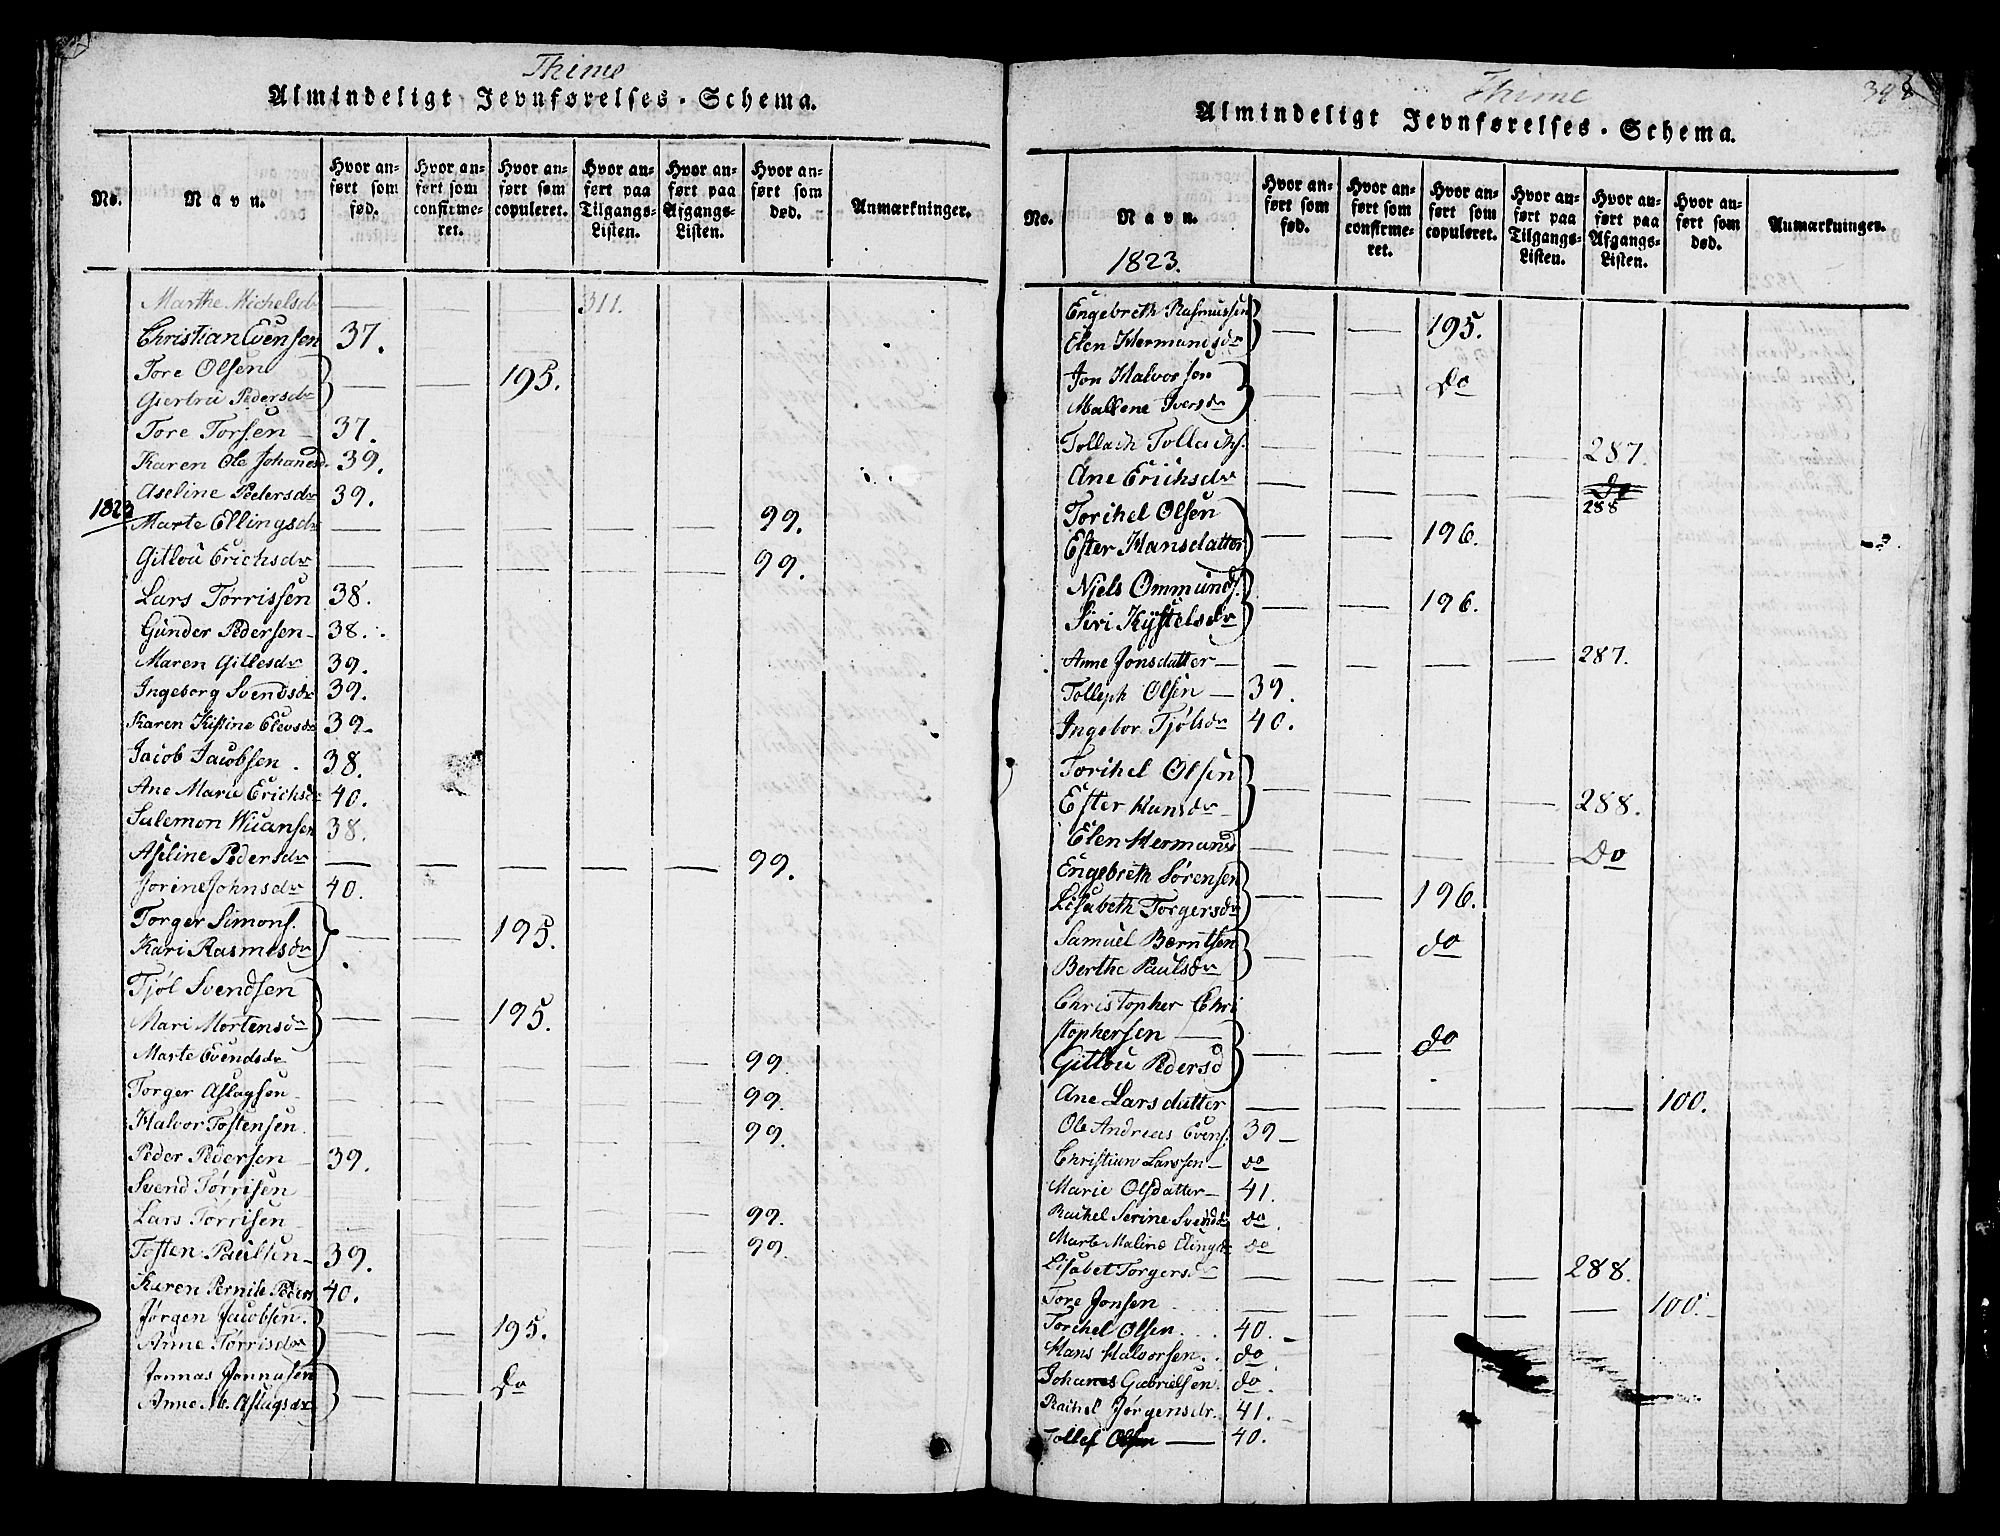 Thime
Almindeligt Jevnførelses-Schema.
No.
Navn.
Hvor anført som fød.
Hvor anført som confirmeret.
Hvor anført som copuleret.
Hvor anført paa Tilgangs-Listen.
Hvor anført paa Afgangs-Listen.
Hvor anført som død.
Anmærkninger.
Marthe Michelsdr — — — 311.
Christian Evensen 37.
Tore Olsen
Giertru Pedersdr — — 195.
Tore Torsen — 37.
Karen Ole Johansd. 39.
Aseline Pedersdr 39.
1823
Marte Ellingsdr — — — — — 99.
Gitlou Erichsdr — — — — — 99.
Lars Tørrissen 38.
Gunder Pedersen — 38.
Maren Gitlesdr 39.
Ingeborg Svendsdr 39.
Karen Kistine Elevsdr 39 —
Jacob Jacobsen . 38.
Ane Marie Erichsdr 40.
Salemon 38.
Aseline Pedersdr — — — — — 99.
Jorine Johnsdr 40.
Torger Simons.
Kari Rasmusdr — — 195.
Tjøl Svendsen
Mari Mortensdr — — 195.
Marte Evendsdr — — — — — 99.
Torger Aslagsen — — — — — 99.
Halvor Tostensen — — — — — 99.
Peder Pedersen — 39.
Svend Tørrisen
Lars Tørrisen — — — — — 99.
Tosten Paulsen — 39. 99.
Karen Pernile Peders 40.
Jørgen Jacobsen.
Anne Tørrisdr — — 195.
Jonnas Jonnasen
Anne M. Aslagsdr — — do
Thime
348
Almindeligt Jevnførelses-Schema.
No.
Navn.
Hvor anført som fød.
Hvor anført som confirmeret.
Hvor anført som copuleret.
Hvor anført paa Tilgangs-Listen.
Hvor anført paa Afgangs-Listen.
Hvor anført som død.
Anmærkninger.
1823.
Engebreth Rasmussen
Elen Hermundsdr — — 195.
Jon Halvorsen
Mallene Iversdr — — do
Tollach Tollachs. — — — — 287.
Ane Erichsdr — — — — do 288
Torchel Olsen
Ester Hansdatter — — 196.
Niels Ommunds.
Siri Kystelsdr — — 196.
Anne Jonsdatter — — — — — 287.
Tolleph Olsen — 39.
Ingebor Tjølsdr 40.
Torchel Olsen
Ester Hansdr — — — — 288.
Elen Hermunsd — — — — do
Engebreth Sørensen
Lisabeth Torgersdr — — 196.
Samuel Berntsen
Berthe Paulsdr — — do
Christopher Chri
stophersen —
Gitlou Pedersd — — do
Ane Larsdatter — — — — — 100.
Ole Andreas Evens. 39 —
Christian Larssen — do
Marie Olsdatter — 41.
Rachel Serine Svendsd do.
Marte Maline Elingdr do
Lisabet Torgersdr — — — — 288.
Tore Jonsen — — — — — 100.
Torchel Olsen . . . 40. —
Hans Halvorsen . . do
Johanes Gabrielsen. do.
Rachel Jørgensdr. 41. —
Tollef Olsen — 40.